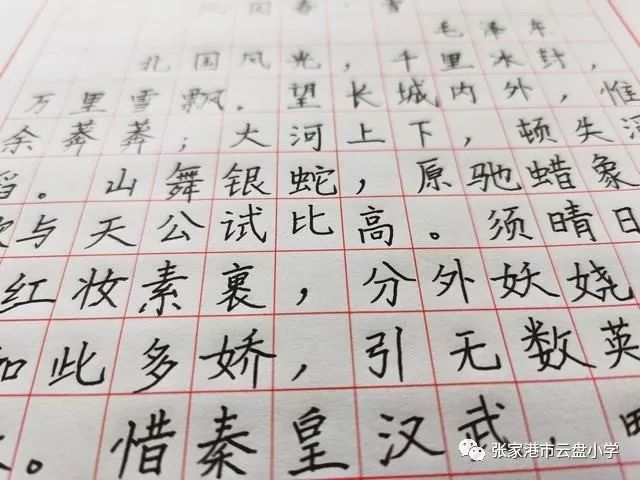 沁园春·雪
毛泽东
北国风光，千里冰封，
万里雪飘。望长城内外，惟
余莽莽；大河上下，顿失滔
滔。山舞银蛇，原驰蜡象，
欲与天公试比高。须晴日，
红妆素裹，分外妖娆
如此多娇，引无数英
。惜秦皇汉武，略
张家港市云盘小学